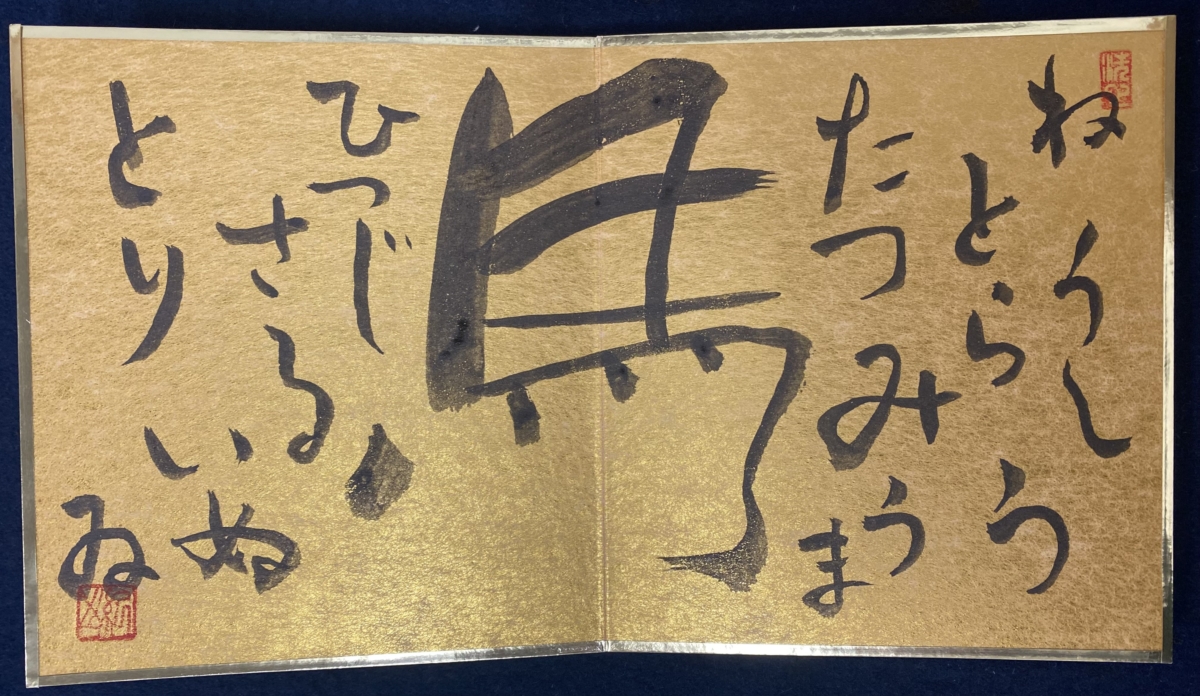 ねうし
とらう
たつみうま
馬
ひつじ
さる
とり
いぬ
ゐ